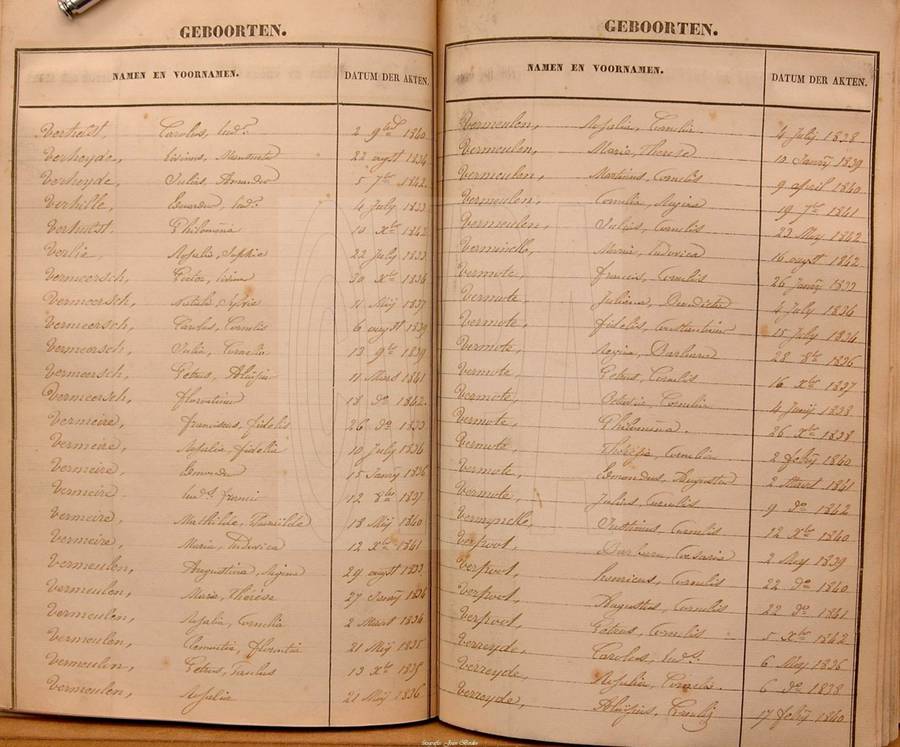 GEBOORTEN.
NAMEN EN VOORNAMEN. DATUM DER AKTEN.
Verhulst, Carolus, Lud.s 2 9bre 1840
Verheyde, 22 augst 1836
Verheyde, Julius, Amandus 5 7bre 1842
Verhille, Eduardus, Lud.s 4 July 1833
Verhulst, Philomena 10 Xbre 1842
Verlie, Rosalie, Sophie 22 July 1833
Vermeersch, Pieter, 30 Xbre 1836
Vermeersch, Natalie, Sylvie 11 Meÿ 1837
Vermeersch, Carolus, Cornelis 6 augst 1839
Vermeersch, Julia, Cornelia 13 9bre 1839
Vermeersch, Petrus, Aloÿsius 11 Mars 1841
Vermeersch, Florentina 18 do 1842
Vermeire, Franciscus, fidelis 26 do 1833
Vermeire, Natalia, fidelia 10 July 1836
Vermeire, 15 Janrÿ 1836
Vermeire, Lud.s 12 8bre 1837
Vermeire, Mathilde, 18 Meÿ 1840
Vermeire, Maria, Ludovica 12 Xbre 1841
Vermeulen, Augustina, Regina 29 augst 1833
Vermeulen, Marie, Thérèse 27 Janrÿ 1834
Vermeulen, Rosalia, Cornelia 2 Maart 1834
Vermeulen, 21 Meÿ 1835
Vermeulen, Petrus, 13 Xbre 1835
Vermeulen, Rosalia 21 Meÿ 1836
GEBOORTEN.
NAMEN EN VOORNAMEN. DATUM DER AKTEN.
Vermeulen, Rosalia, Cornelia 4 July 1838
Vermeulen, Marie, Therese 10 Janrÿ 1839
Vermeulen, Martinus, Cornelis 9 april 1840
Vermeulen, Cornelia, Regina 19 7bre 1841
Vermeulen, Julius, Cornelis 23 Mey 1842
Maria, Ludovica 16 augst 1842
Vermote, Francis, Cornelis 26 Janrÿ 1833
Vermote, Juliana, Benedicta 4 July 1834
Vermote, fidelis, Constantinus 15 July 1834
Vermote, Regina, Barbara 28 8bre 1836
Vermote, Petrus, Cornelis 16 Xbre 1837
Vermote, Cornelia 4 1838
Vermote, Philomena. 26 Xbre 1838
Vermote, Theresia, Cornelia 2 febrÿ 1840
Vermote, Edmondus, Augustus 2 Maart 1841
Vermote, Julius, Cornelis 9 do 1842
Justinus, Cornelis 12 Xbre 1840
Verpoot, Barbara, Cesaria 2 Mey 1839
Verpoot, henricus, Cornelis 22 do 1840
Verpoot, Augustus, Cornelis 22 do 1841
Verpoot, Petrus, Cornelis 5 Xbre 1842
Verreyde, Carolus, Lud.s 6 Mey 1836
Verreyde, Rosalia, Cornelia. 6 do 1838
Verreyde, Aloÿsius, Cornelis 17 febrÿ 1840